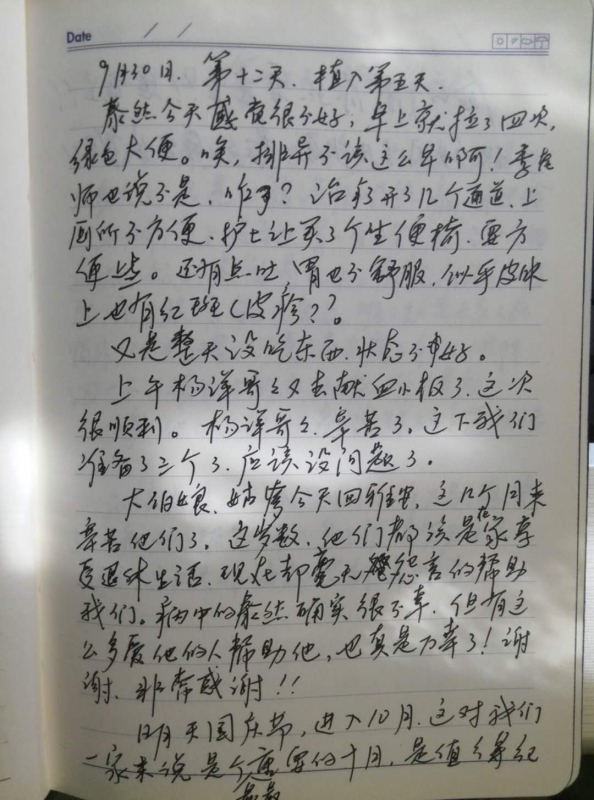 Date / /
9月30日. 第十二天. 植入第五天.
然今天感觉很不好, 早上就拉了四次,
绿色大便。唉, 排异不该这么早啊! 李医
师也说不是. 咋了? 治疗开了几个通道. 上
厕所不方便. 护士让买了个坐便椅. 要方
便些。还有点吐 胃也不舒服. 似乎皮肤
上也有红斑(皮疹?)。
又是整天没吃东西. 状态不好。
上午杨洋哥々又去献血小板了. 这次
很顺利。杨洋哥々. 辛苦了. 这下我们
准备了三个了. 应该没问题了。
大伯娘、姑爹今天回雅安, 这几个月来
辛苦他们了。这岁数, 他们都该是在家享
受退休生活. 现在却毫无怨言的帮助
我们。病中的然确实很不幸. 但有这
么多爱他的人帮助他, 也真是万幸了! 谢
谢. 非常感谢!!
明天国庆节, 进入10月. 这对我们
一家来说是个重要的十月, 是值得纪